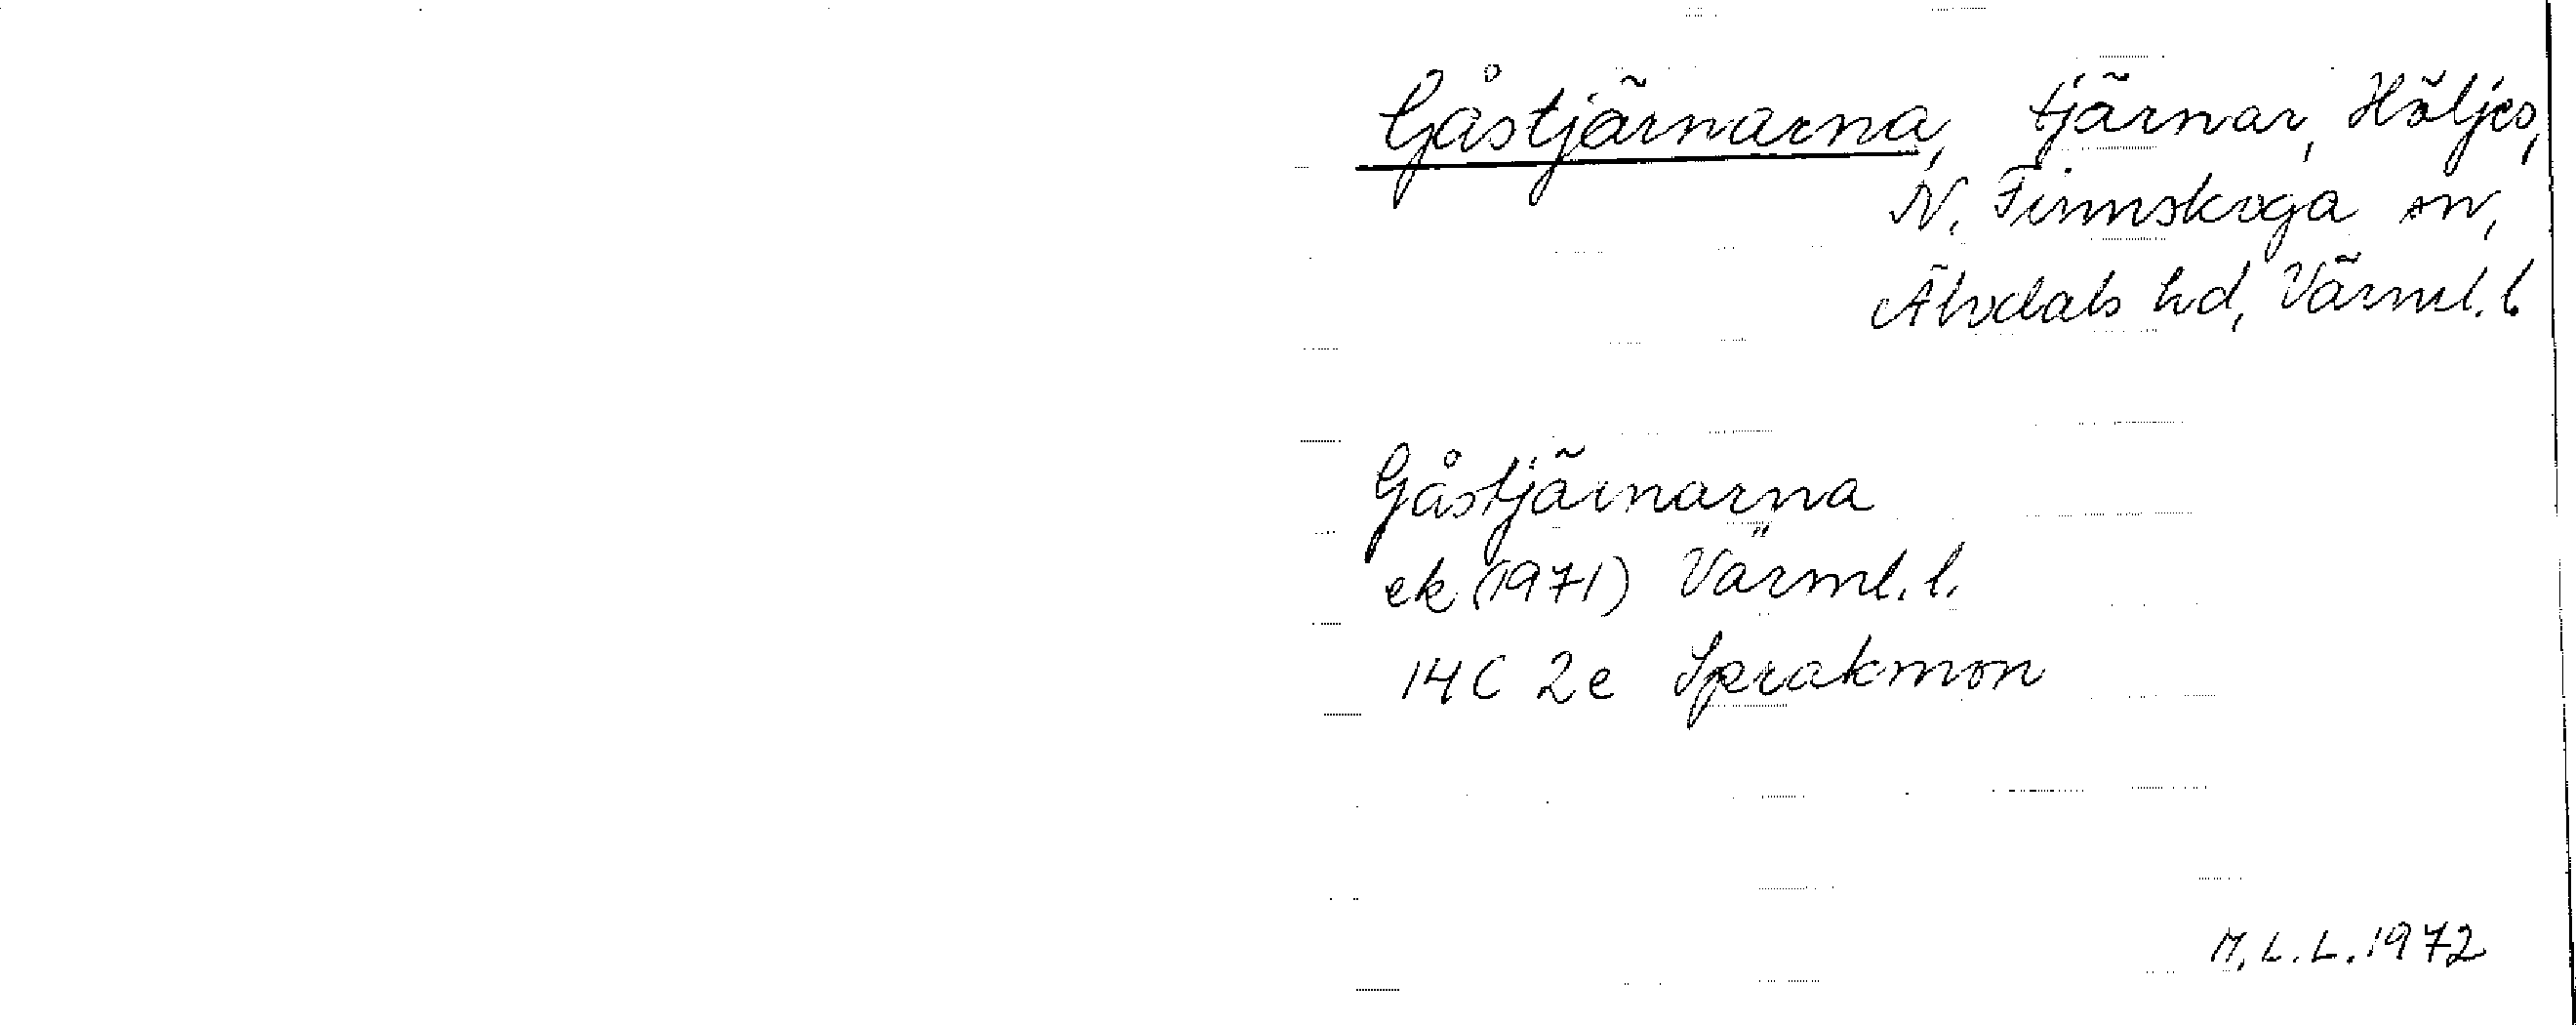 Gåstjärnarna, tjärnar, Höljes,
N. Finnskoga sn,
Älvdals hd, Värml. l.
Gåstjärnarna
ek (1971) Värml. l.
14C 2e Sprakmon
M. L. L. 1972